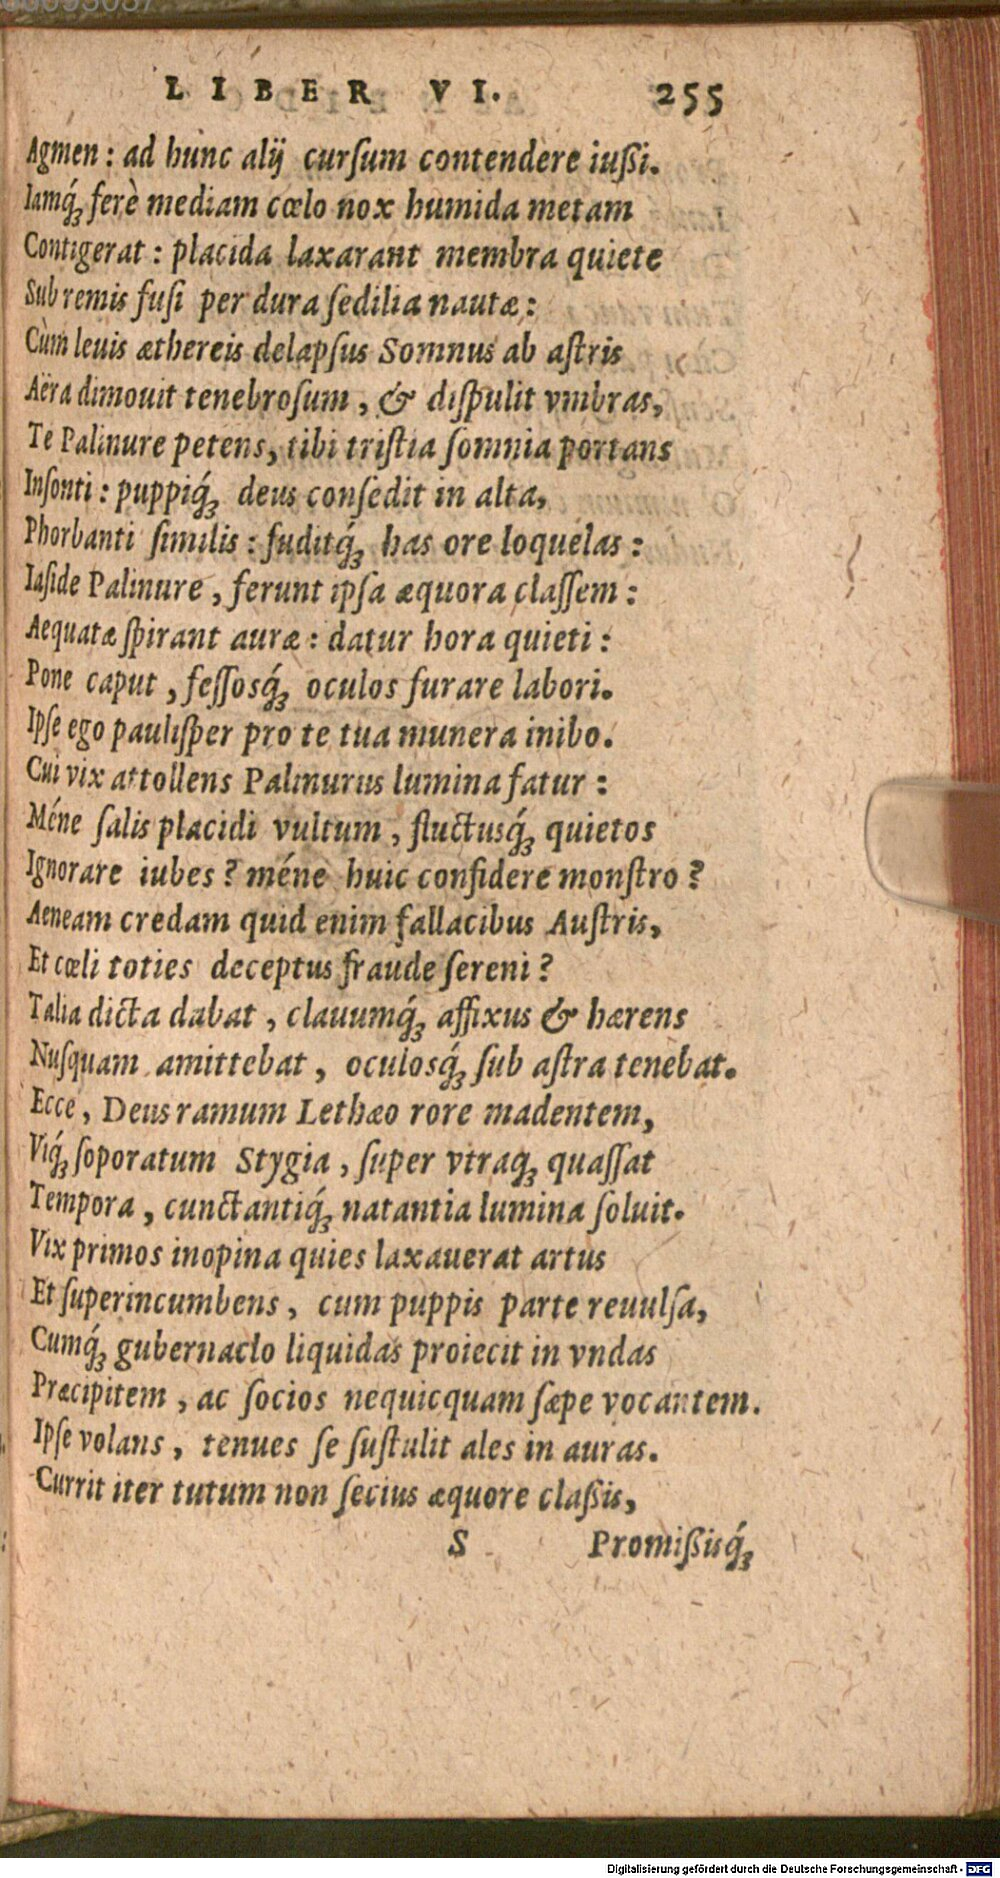 LIBER VI. 255
Agmen: ad hunc alij cursum contendere iußi.
Iamq́; ferè mediam cœlo nox humida metam
Contigerat: placida laxarant membra quiete
Sub remis fusi per dura sedilia nautæ:
Cùm leuis æthereis delapsus Somnus ab astris
Aëra dimouit tenebrosum, & dispulit vmbras,
Te Palinure petens, tibi tristia somnia portans
Insonti: puppiq́; deus consedit in alta,
Phorbanti similis: fuditq́; has ore loquelas:
Iaside Palinure, ferunt ipsa æquora classem:
Aequatæ spirant auræ: datur hora quieti:
Pone caput, fessosq́; oculos furare labori.
Ipse ego paulisper pro te tua munera inibo.
Cui vix attollens Palinurus lumina fatur:
Méne salis placidi vultum, fluctusq́; quietos
Ignorare iubes? méne huic confidere monstro?
Aeneam credam quid enim fallacibus Austris,
Et cœli toties deceptus fraude sereni?
Talia dicta dabat, clauumq́; affixus & hærens
Nusquam amittebat, oculosq́; sub astra tenebat.
Ecce, Deus ramum Lethæo rore madentem,
Viq́; soporatum Stygia, super vtraq; quassat
Tempora, cunctantiq́; natantia lumina soluit.
Vix primos inopina quies laxauerat artus
Et superincumbens, cum puppis parte reuulsa,
Cumq́; gubernaclo liquidas proiecit in vndas
Præcipitem, ac socios nequicquam sæpe vocantem.
Ipse volans, tenues se sustulit ales in auras.
Currit iter tutum non secius æquore claßis,
S Promißisq́;
Digitalisierung gefördert durch die Deutsche Forschungsgemeinschaft - DFG